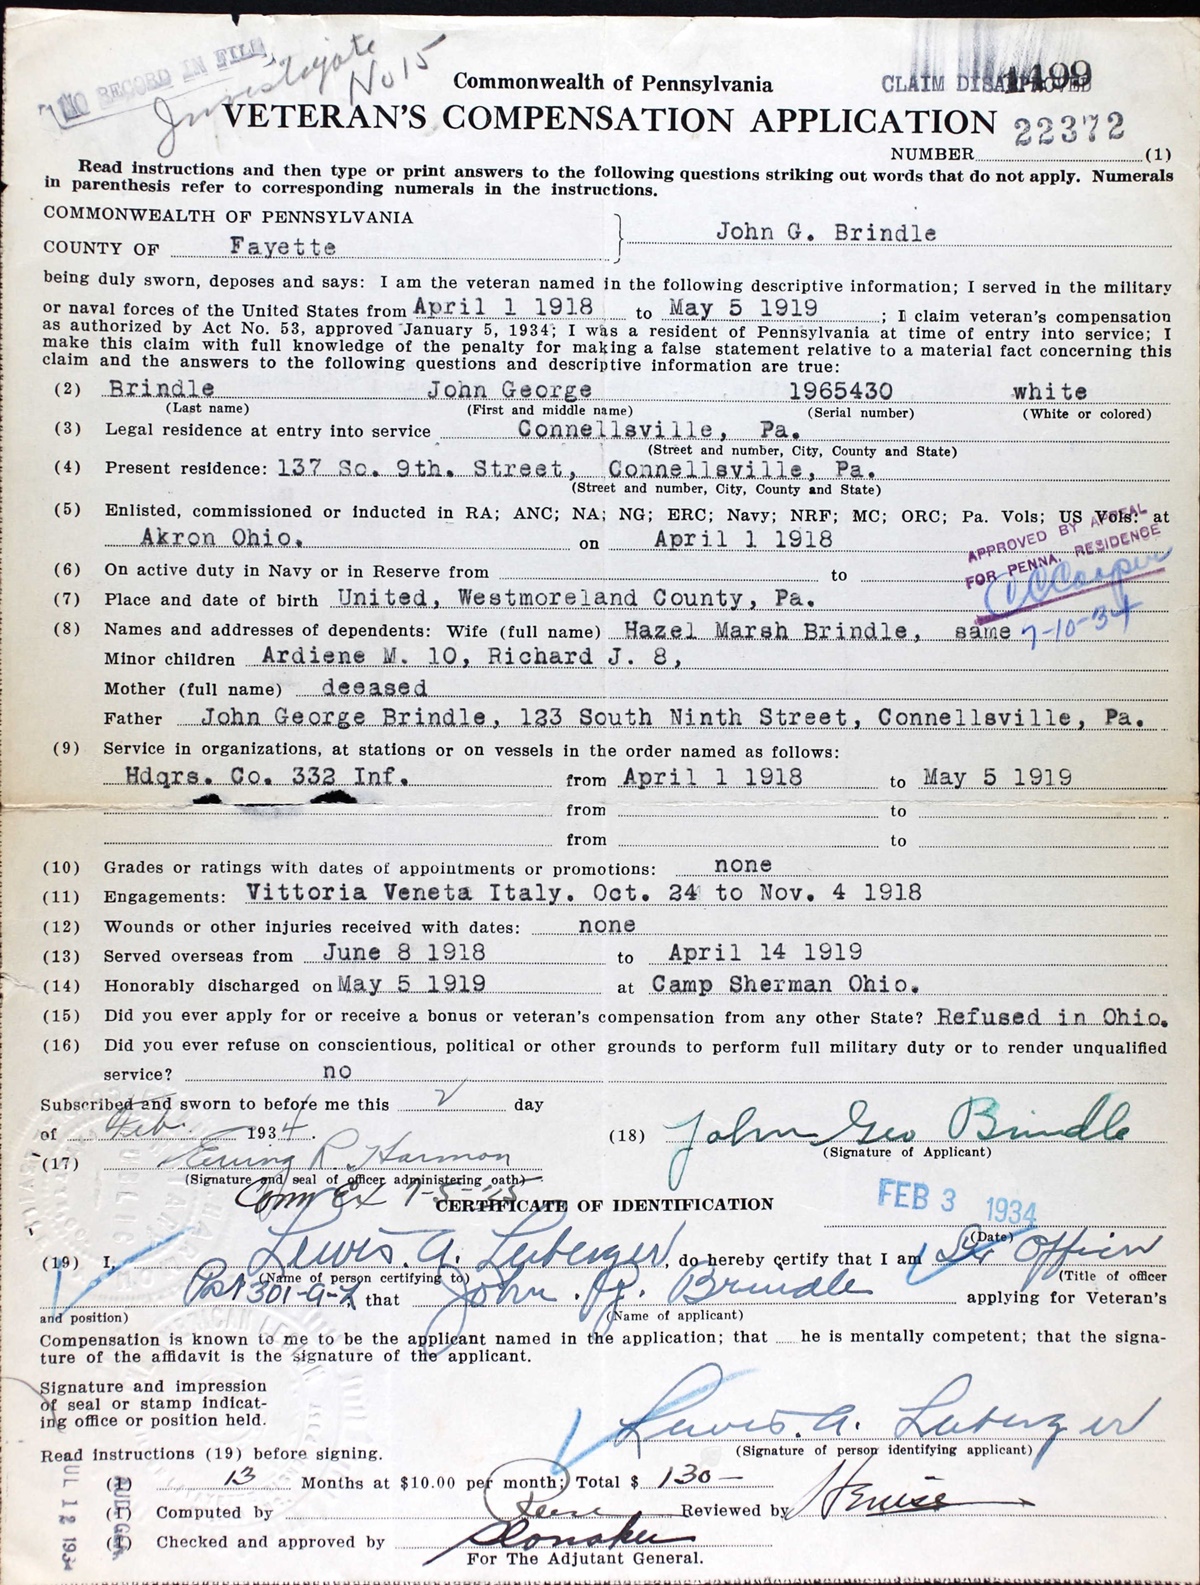 NO RECORD IN FILE
Investigate
No 15
Commonwealth of Pennsylvania
CLAIM DISAPPROVED
1499
VETERAN'S COMPENSATION APPLICATION
22372
NUMBER (1)
Read instructions and then type or print answers to the following questions striking out words that do not apply. Numerals
in parenthesis refer to corresponding numerals in the instructions.
COMMONWEALTH OF PENNSYLVANIA
John G. Brindle
COUNTY OF Fayette
being duly sworn, deposes and says: I am the veteran named in the following descriptive information; I served in the military
or naval forces of the United States from April 1 1918 to May 5 1919 ; I claim veteran's compensation
as authorized by Act No. 53, approved January 5, 1934; I was a resident of Pennsylvania at time of entry into service; I
make this claim with full knowledge of the penalty for making a false statement relative to a material fact concerning this
claim and the answers to the following questions and descriptive information are true:
(2) Brindle John George 1965430 white
(Last name) (First and middle name) (Serial number) (White or colored)
(3) Legal residence at entry into service Connellsville, Pa.
(Street and number, City, County and State)
(4) Present residence: 137 So. 9th. Street, Connellsville, Pa.
(Street and number, City, County and State)
(5) Enlisted, commissioned or inducted in RA; ANC; NA; NG; ERC; Navy; NRF; MC; ORC; Pa. Vols; US Vols: at
Akron Ohio. on April 1 1918
APPROVED BY APPEAL
FOR PENNA. RESIDENCE
(6) On active duty in Navy or in Reserve from to
(7) Place and date of birth United, Westmoreland County, Pa.
(8) Names and addresses of dependents: Wife (full name) Hazel Marsh Brindle, same
7-10-34
Minor children Ardiene M. 10, Richard J. 8,
Mother (full name) deeased
Father John George Brindle, 123 South Ninth Street, Connellsville, Pa.
(9) Service in organizations, at stations or on vessels in the order named as follows:
Hdqrs. Co. 332 Inf. from April 1 1918 to May 5 1919
from to
from to
(10) Grades or ratings with dates of appointments or promotions: none
(11) Engagements: Vittoria Veneta Italy. Oct. 24 to Nov. 4 1918
(12) Wounds or other injuries received with dates: none
(13) Served overseas from June 8 1918 to April 14 1919
(14) Honorably discharged on May 5 1919 at Camp Sherman Ohio.
(15) Did you ever apply for or receive a bonus or veteran's compensation from any other State? Refused in Ohio.
(16) Did you ever refuse on conscientious, political or other grounds to perform full military duty or to render unqualified
service? no
Subscribed and sworn to before me this 2 day
of Feb. 1934.
(18) John Geo Brindle
(Signature of Applicant)
(17) Ewing R. Harmon
(Signature and seal of officer administering oath)
Comm Ex
CERTIFICATE OF IDENTIFICATION
FEB 3 1934
(Date)
(19) I, Lewis A. Luberger, do hereby certify that I am Ser Officer
(Name of person certifying to) (Title of officer
Post 301-A-L that John G. Brindle applying for Veteran's
and position) (Name of applicant)
Compensation is known to me to be the applicant named in the application; that he is mentally competent; that the signa-
ture of the affidavit is the signature of the applicant.
Signature and impression
of seal or stamp indicat-
ing office or position held.
Lewis A. Luberger
(Signature of person identifying applicant)
Read instructions (19) before signing.
(1) 13 Months at $10.00 per month; Total $ 130—
(1) Computed by Reviewed by
(1) Checked and approved by
For The Adjutant General.
JUL 12 1934